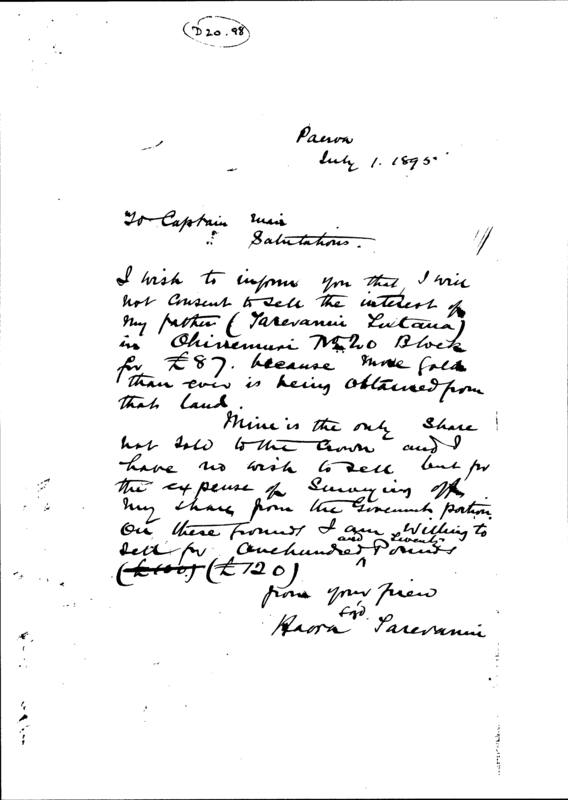 D20.98
Paeroa
July 1. 1895
To Captain Mair
Salutations.
I wish to inform you that, I will
not consent to sell the interest of
my father (Tarevanui Tutana)
in Ohinemuri No 20 Block
for £87. because more gold
than ever is being obtained from
that land.
Mine is the only share
not sold to the Crown and I
have no wish to sell but for
the expense of Surveying off
my share from the Governments portion.
On these grounds I am willing to
sell for One hundred and twenty Pounds
(£100) (£120)
from your friend
sgd
Haora Tarevanui